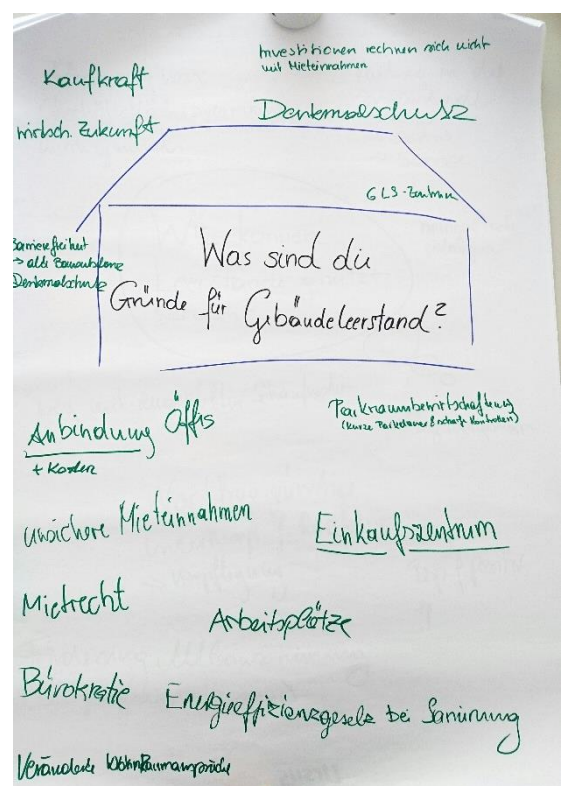 Investitionen rechnen sich nicht
mit Mieteinnahmen
Kaufkraft
Denkmalschutz
wirtsch. Zukunft
GLS-Zentrum
Barrierefreiheit
→ alte Bausubstanz
Denkmalschutz
Was sind die
Gründe für Gebäudeleerstand?
Parkraumbewirtschaftung
(kurze Parkdauer & scharfe Kontrollen)
Anbindung Öffis
+ Kosten
unsichere Mieteinnahmen
Einkaufszentrum
Mietrecht
Arbeitsplätze
Bürokratie
Energieeffizienzgesetz bei Sanierung
Veränderte Wohnraumansprüche